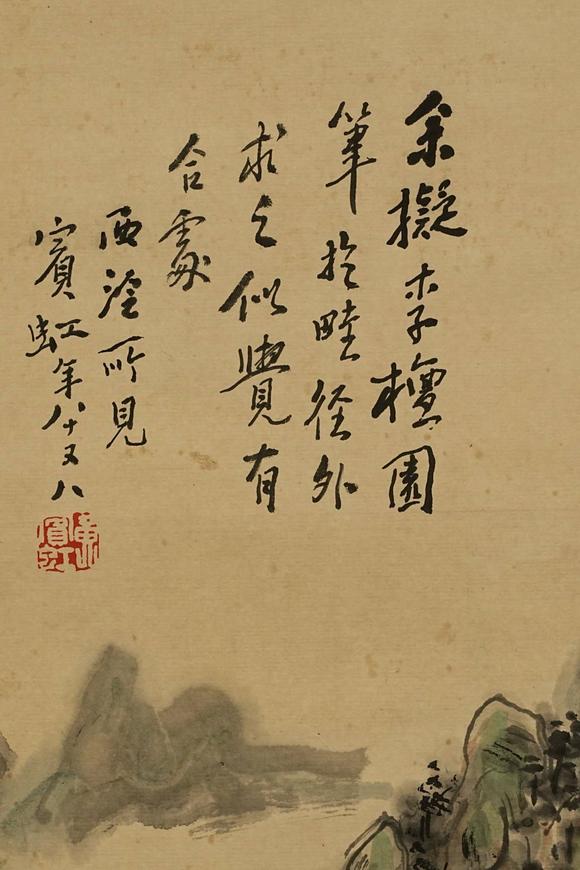 余擬李檀園
筆於畦徑外
求之似覺有
合處
西泠所見
賓虹年八十又八
黃賓虹